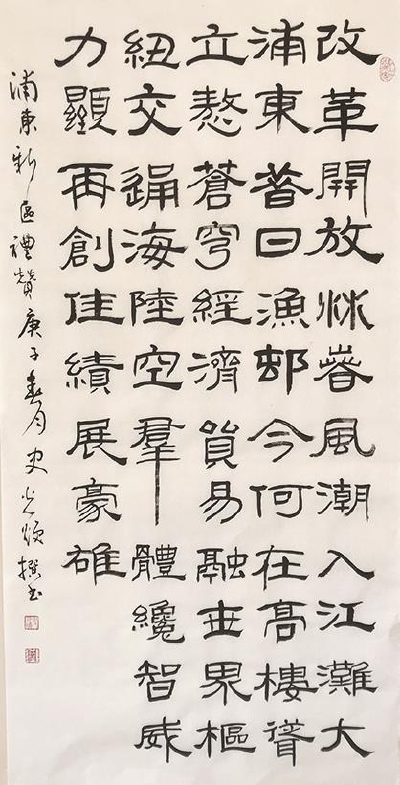 改革開放沐春風潮入江灘大
浦東昔日漁邨今何在高樓聳
立慠蒼穹經濟貿易融世界樞
紐交通海陸空羣體纔智威
力顯再創佳績展豪雄
浦東新區禮贊庚子春月史頌撰書